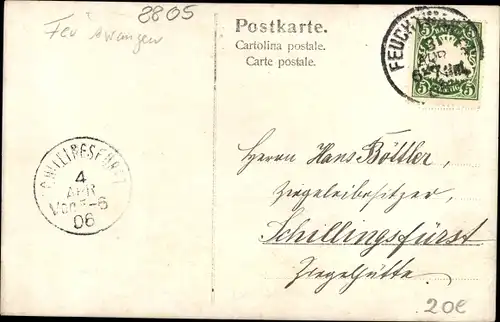 8805
Feuchtwangen
Postkarte.
Cartolina postale.
Carte postale.
FEUCHTWANGEN
5
5
SCHILLINGSFÜRST
4
APR
Vor. 5-6
06
Herrn Hans Böttler,
Ziegeleibesitzer,
Schillingsfürst
Ziegelhütte.
20€